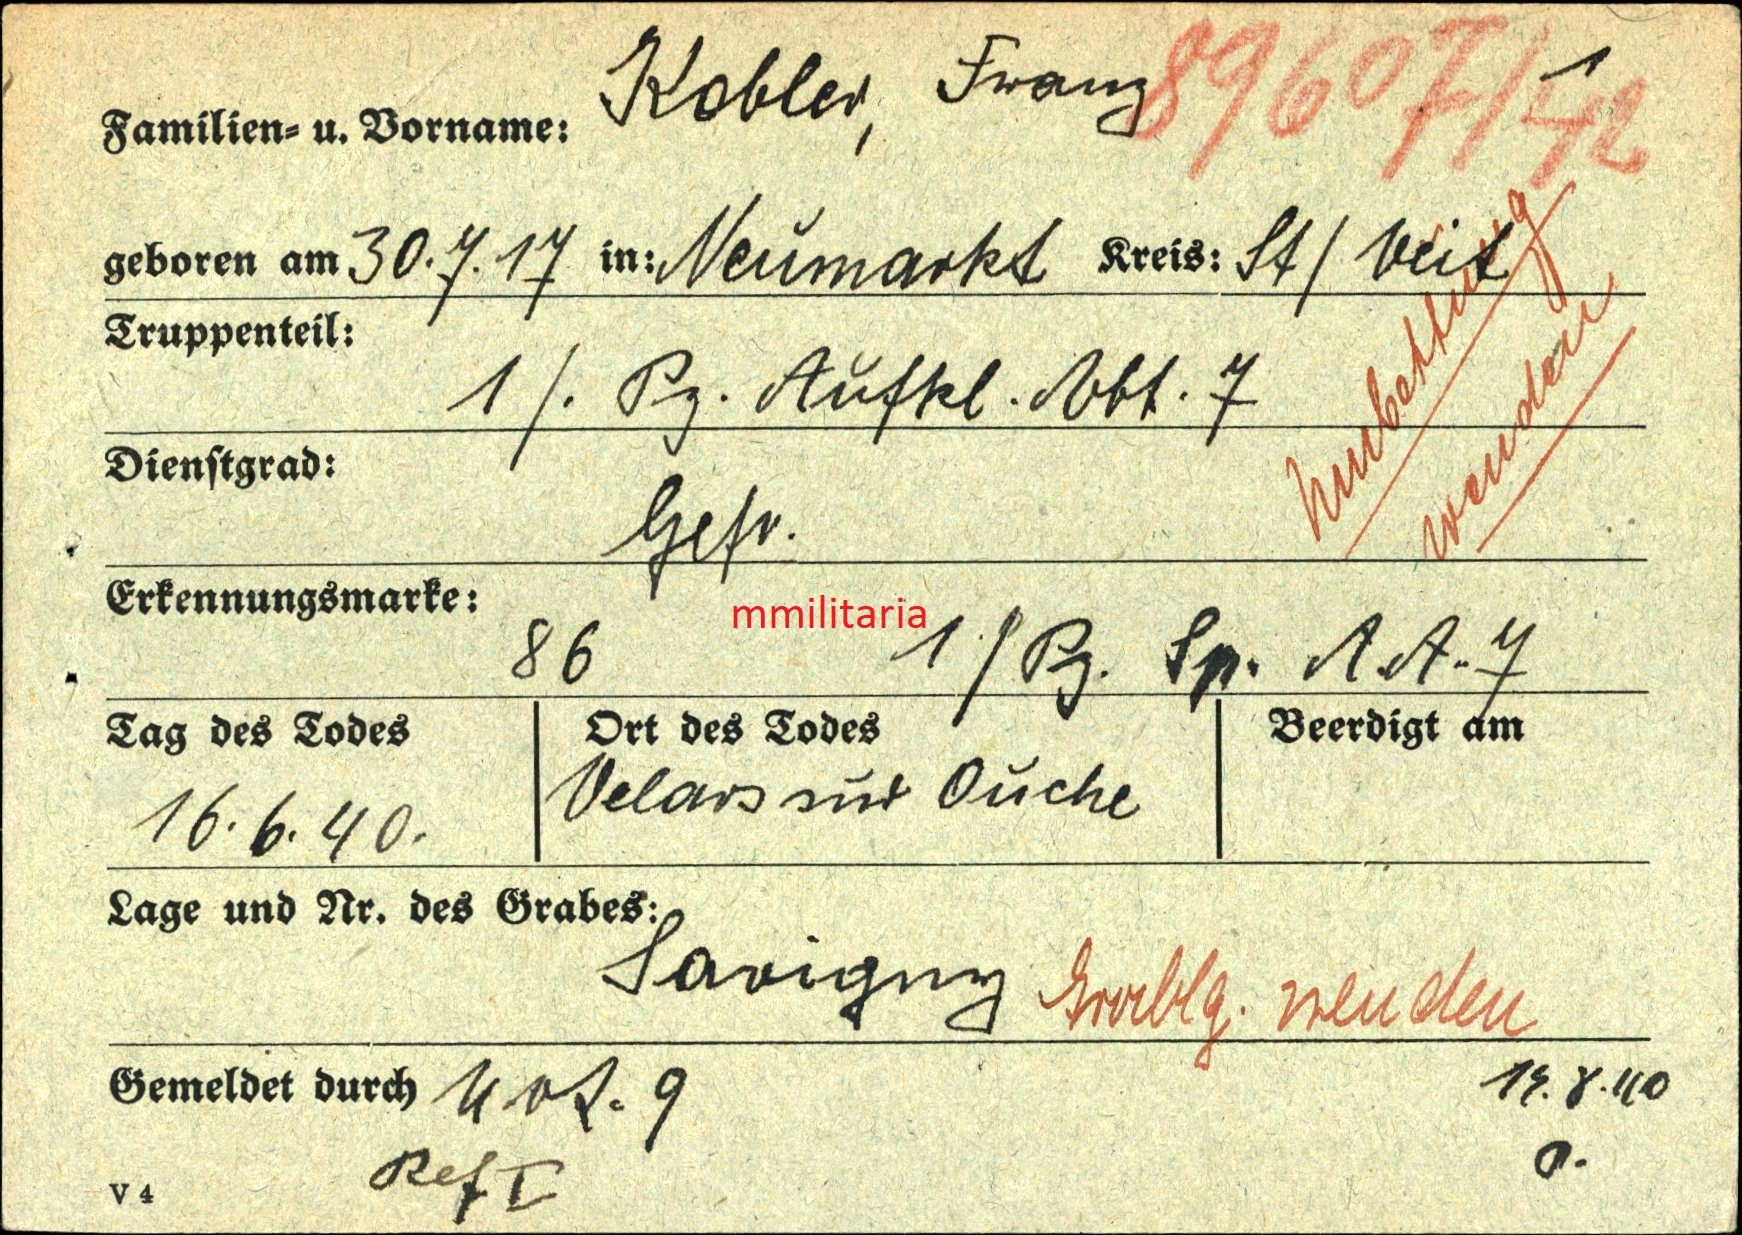 Kobler, Franz 1
89607/42
Familien= u. Vorname:
geboren am 30.7.17 in: Neumarkt Kreis: St/Veit
Truppenteil:
1/. Pz. Aufkl. Abt. 7
Umbettung
wenden
Dienstgrad:
Gefr.
Erkennungsmarke:
86 1/Pz. Sp. A.A. 7
mmilitaria
Tag des Todes Ort des Todes Beerdigt am
16.6.40. Velars sur Ouche
Lage und Nr. des Grabes:
Savigny Grablg. wenden
Gemeldet durch 9 .8.40
Ref I
V 4